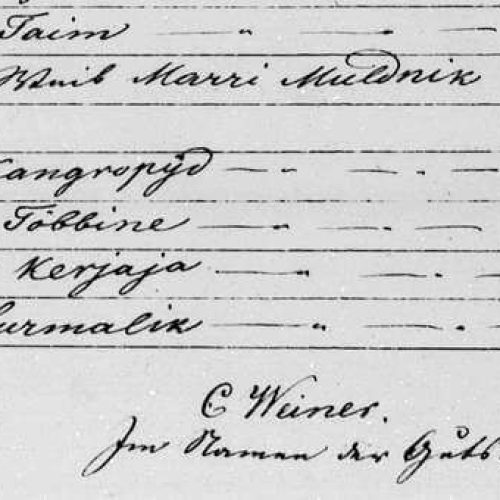 Taim — " — " —
Weib Marri Muldnik
Kangropyd — " — " —
Többine — " — " —
Kerjaja — " — " —
Surmalik — " — " —
C Weiner.
Im Namen der Guts